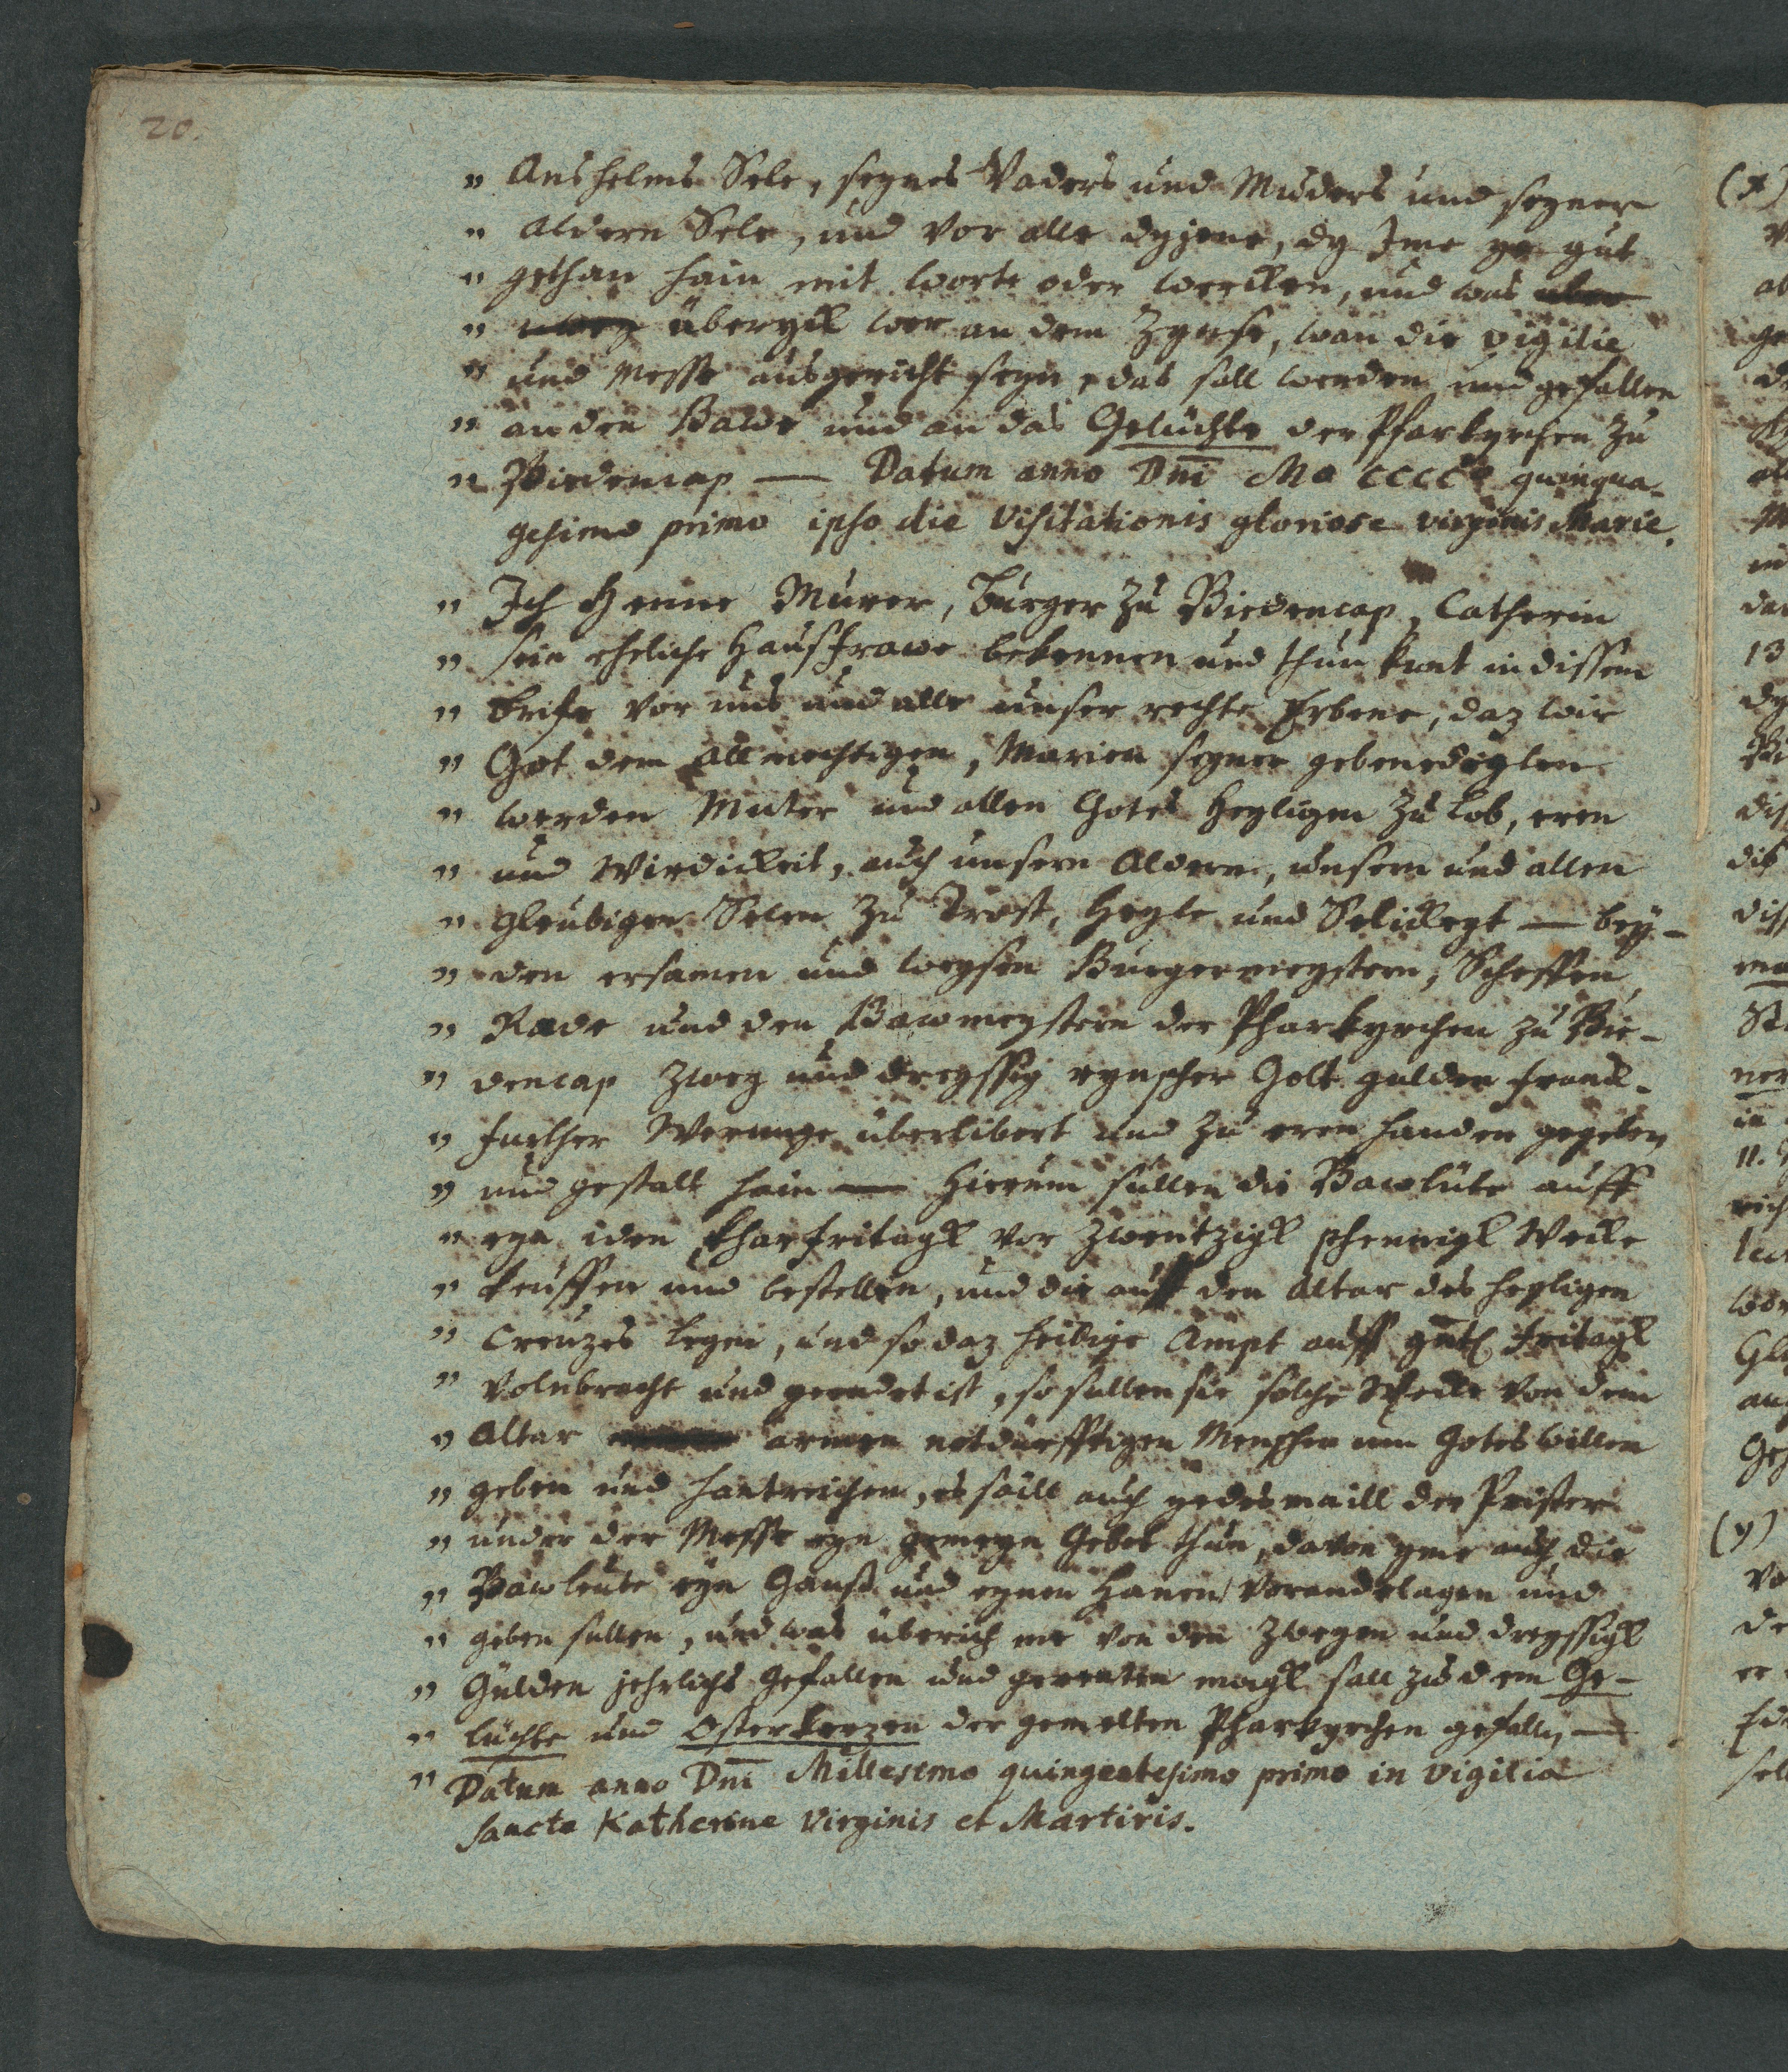 20.
" Anshelms Sele, seynes Vaders und Muders und seyner
" aldern Sele, und vor alle dyjene, dy Ime ye gut
" gethan hain mit worte oder wercken, und was uber
" überyck wer an dem Zynse, wan die vigilie
" und Messe ausgericht seyn, das sall werden und gefallen
" an den Bawe und an das Gelüchte der Pfarkyrchen zu
" Biedencap — Datum anno Dni Mo CCCCo quinqua-
gesimo primo ipso die Visitationis gloriose virginis Marie.
" Ich Henne Murer, Burger zu Biedencap, Catherin
" sein eheliche Hausfrawe bekennen und thun kunt in dissem
" brife vor uns und alle unser rechte Erbene, daz wir
" Got dem allmechtigen, Marien seyner gebenedeyten
" werden Muter und allen Gotes Heyligen zu Lob, eren
" und Wirdickeit, auch unsern Aldern, unsern und allen
" gleubigen Selen zu Trost, Heyle und Selickeyt — bey-
" den ersamen und weysen Burgermeystern, Scheffen,
" Rade und den Bawmeystern der Pharkyrchen zu Bie-
" dencap zwey und dreyssig rynscher Golt gulden franck-
" further Werunge überlibert und zu eren handen gegeben
" und gestalt hain — Hierum sullen die Bawlüte auff
" eyn iden Kharfritagk vor zwentzigk phennigk Wecke
" keuffen und bestellen, und die auff den Altar des heyligen
" Creuzes legen, und so daz heilige Ampt auff gute Fritagk
" volnbracht und geendet ist, so sullen sie solche Wecke von dem
" Altar armen notdürfftigen Menschen um Gotes willen
" geben und hantreichen, es saill auch yedesmaill der Prister
" under der Messe eyn gemeyn Gebet thun, davon yme auch die
" Bawleute eyn Ganß und eynen Hanen verandelagen und
" geben sullen, und was überich me von den zweyen und dreyssigk
" Gülden jehrlichs gefallen und gerenten magk sall zu dem Ge-
" lüchte und Osterkerzen der gemelten Pharkyrchen gefallen —
" Datum anno Dni Millesimo quingentesimo primo in vigilia
sancte Katherine Virginis et Martiris.
(x)
13
11.
(y)